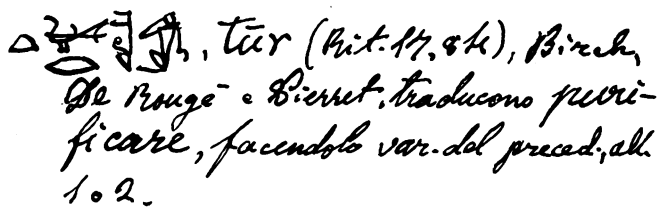 , tūr (Rit. 17, 84), Birch,
De Rougé e Pierret, traducono puri-
ficare, facendolo var. del preced., all.
1 o 2.